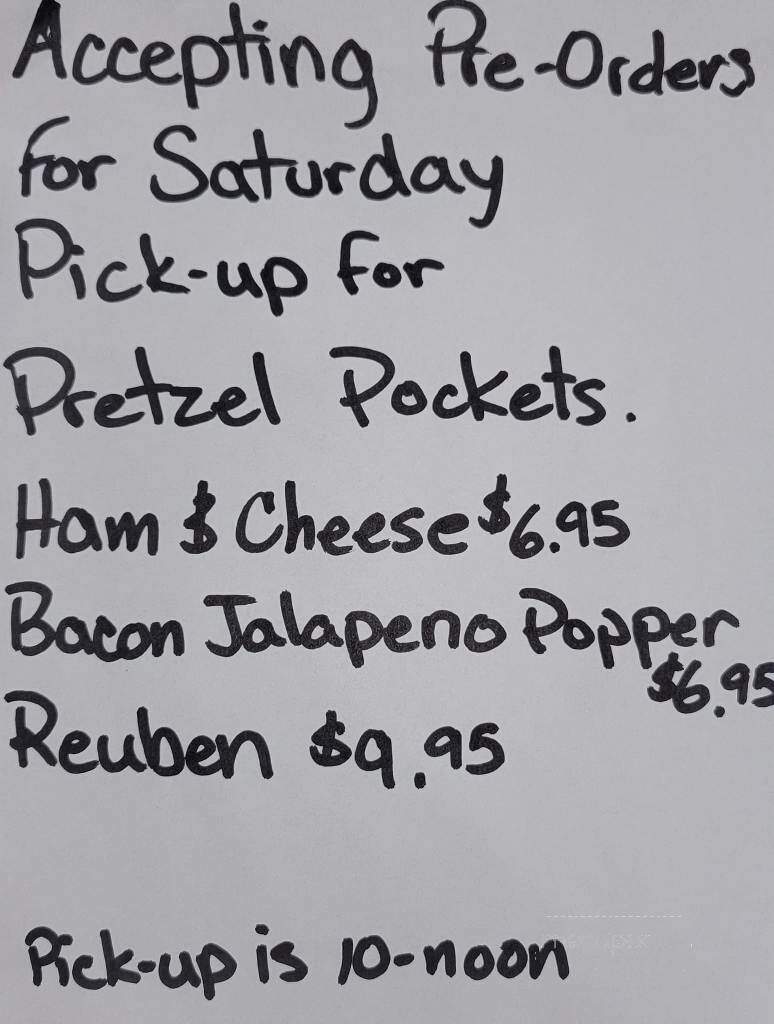 Accepting Pre-Orders
for Saturday
Pick-up for
Pretzel Pockets.
Ham & Cheese $6.95
Bacon Jalapeno Popper
$6.95
Reuben $9.95
Pick-up is 10-noon